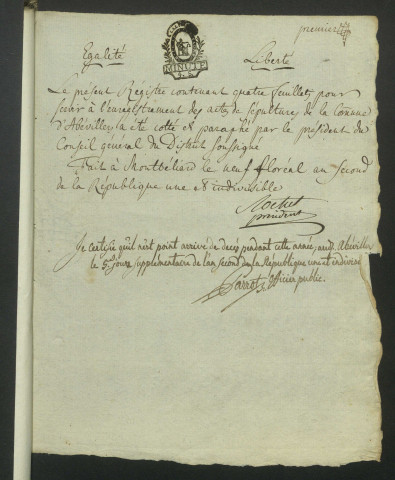 premier
Egalité Liberté
MINUTE
Le présent Registre contenant quatre feuillets pour
servir à l'enregistrement des actes de sépulture de la Commune
d'Abévillers a été cotté & paraphé par le président du
Conseil général du District soussigné
Fait à Montbéliard le neuf floréal an second
de la République une & indivisible
Rochet
président
Je certifie qu'il n'est point arrivé de decès pendant cette année, aud. Abévillers
le 5e jour supplémentaire de l'an second de la République une et indivisi
Parrot officier public.